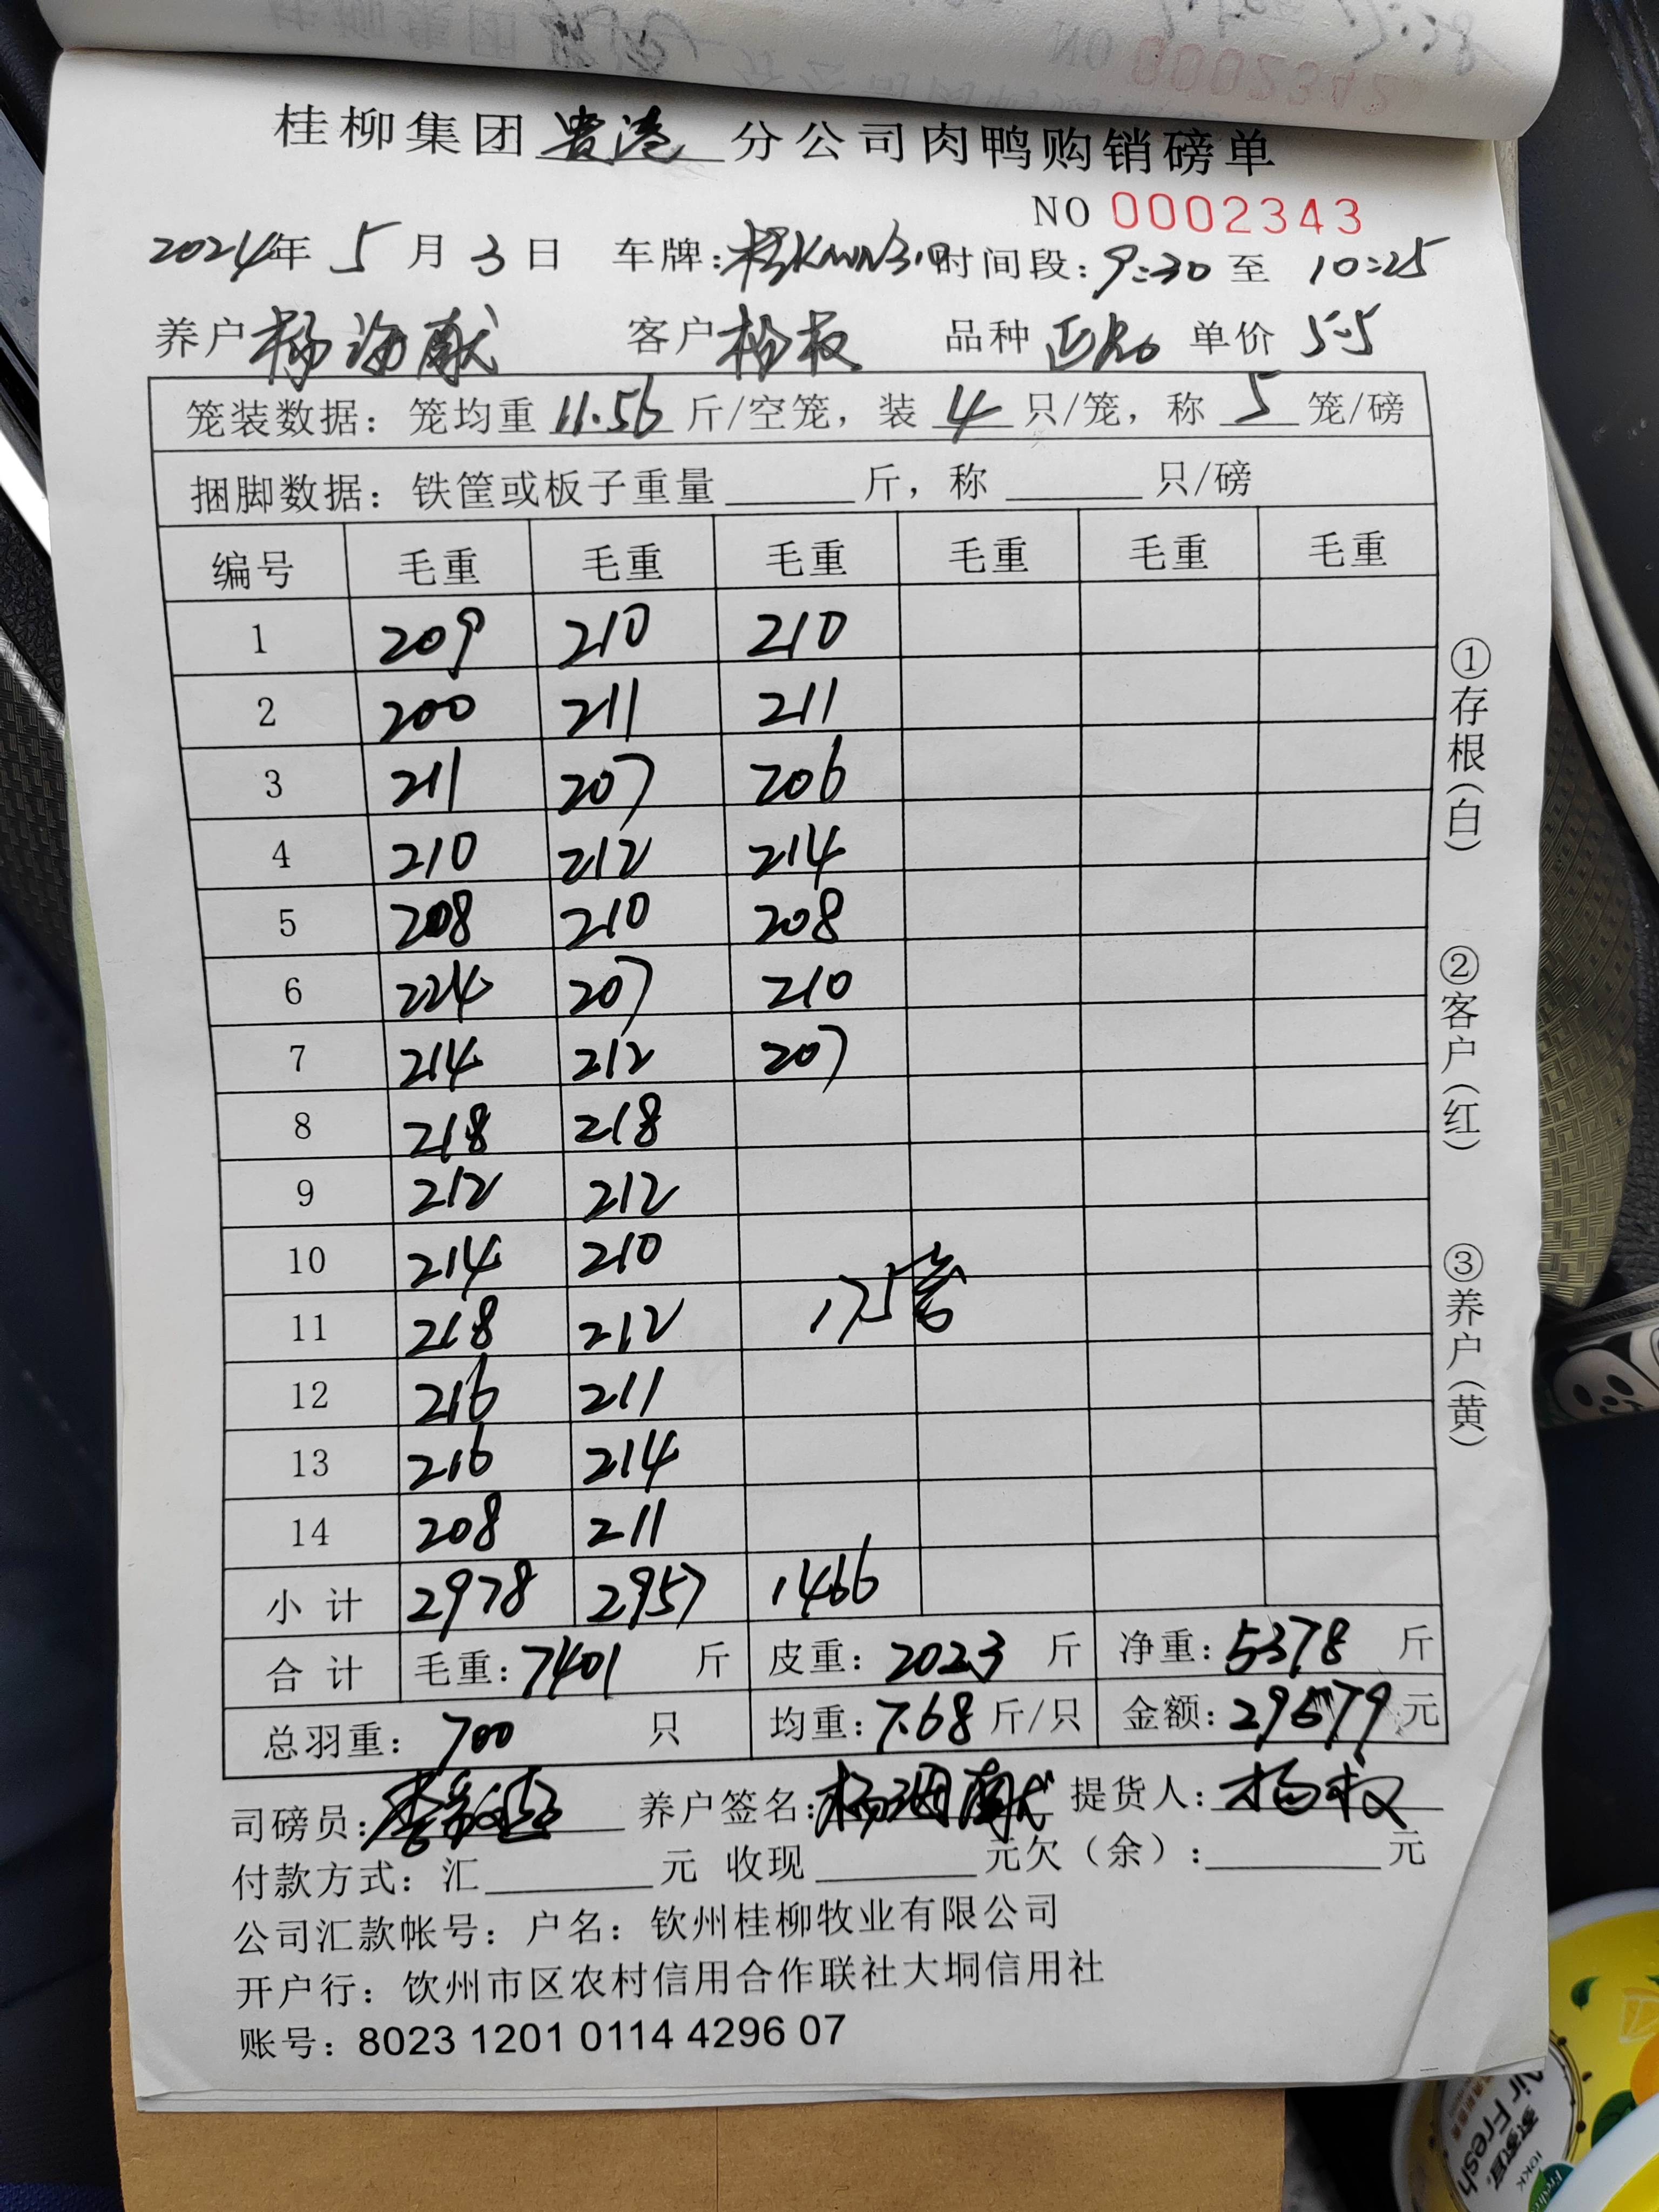 桂柳集团贵港分公司肉鸭购销磅单
NO 0002343
2024年 5 月 3 日 车牌: 时间段: 9:30 至 10:25
养户 杨海献 客户 杨权 品种 单价 5.5
笼装数据: 笼均重 11.56 斤/空笼, 装 4 只/笼, 称 5 笼/磅
捆脚数据: 铁筐或板子重量 斤, 称 只/磅
编号 毛重 毛重 毛重 毛重 毛重 毛重
1 209 210 210
2 200 211 211
3 211 207 206
4 210 212 214
5 208 210 208
6 224 207 210
7 214 212 207
8 218 218
9 212 212
10 214 210
11 218 212 175
12 216 211
13 216 214
14 208 211
小计 2978 2957 1466
合计 毛重: 7401 斤 皮重: 2023 斤 净重: 5378 斤
总羽重: 700 只 均重: 7.68 斤/只 金额: 29579 元
司磅员: 养户签名: 杨海献 提货人: 杨权
付款方式: 汇 元 收现 元 欠(余): 元
公司汇款帐号: 户名: 钦州桂柳牧业有限公司
开户行: 钦州市区农村信用合作联社大垌信用社
账号: 8023 1201 0114 4296 07
①存根(白) ②客户(红) ③养户(黄)
NO 0002342
Air Fresh